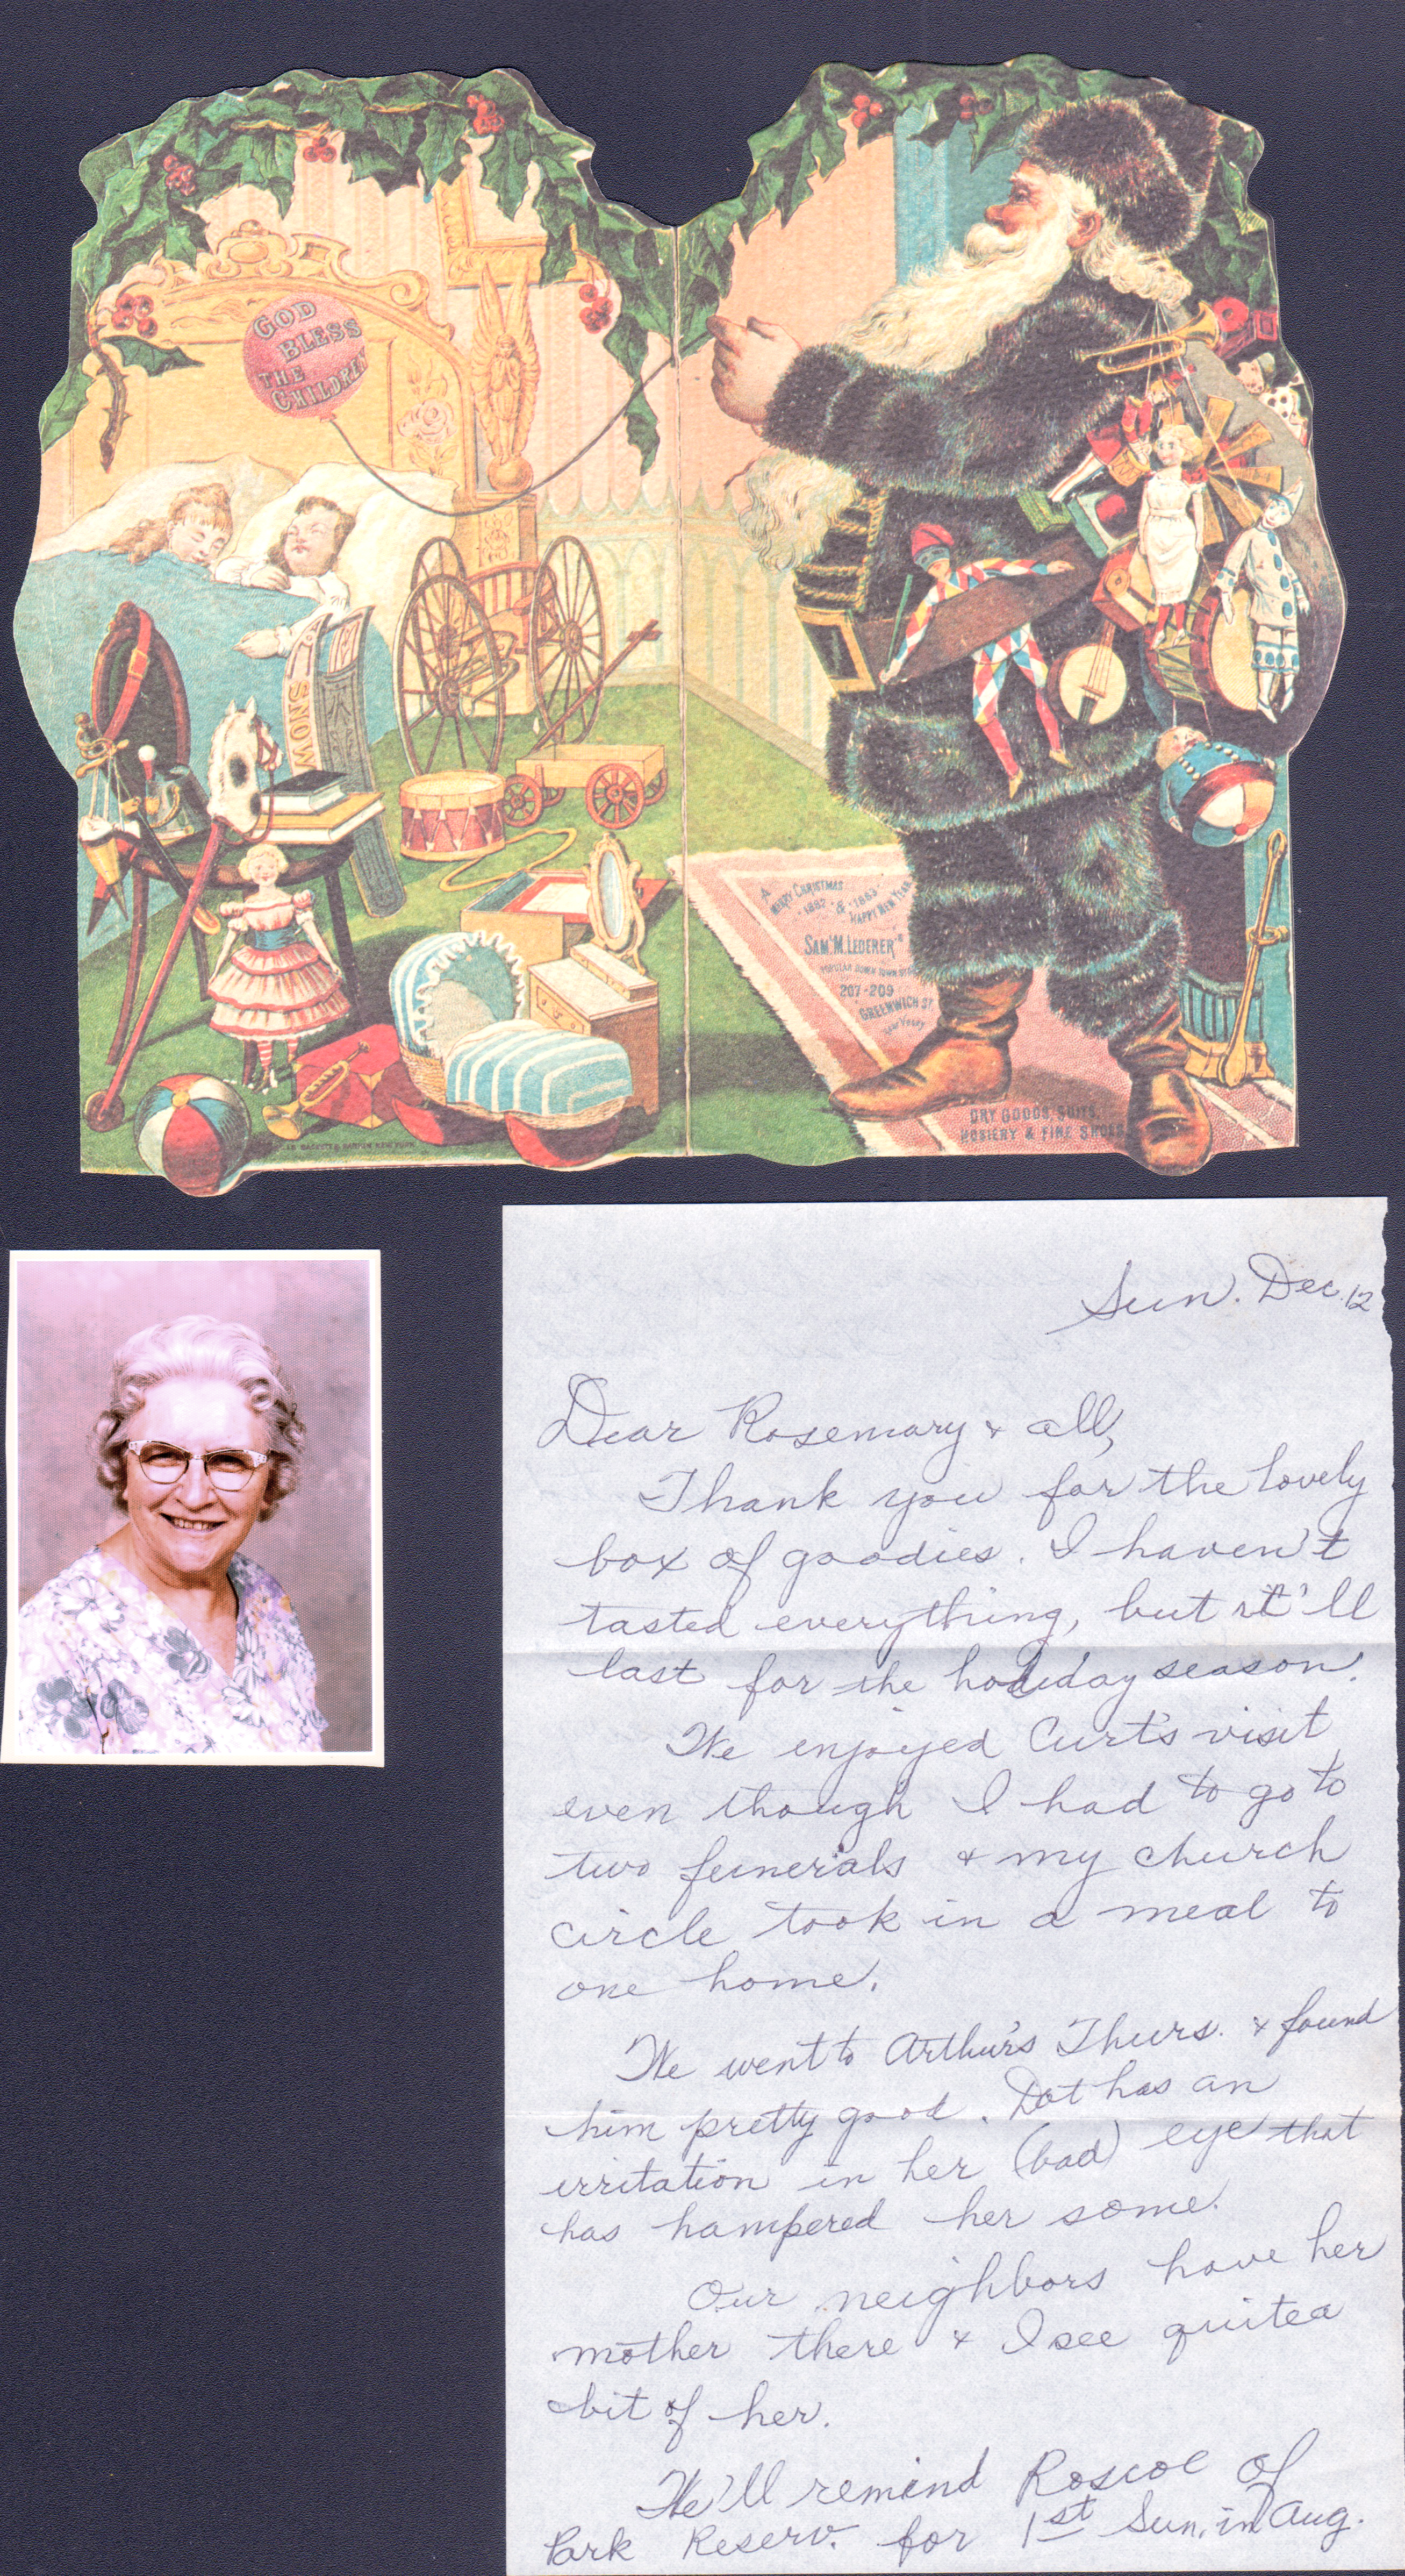 GOD
BLESS
THE
CHILDREN
SNOW
A
MERRY CHRISTMAS
1882 & 1883
HAPPY NEW YEAR
SAM'M. LEDERER
POPULAR DOWN TOWN
207-209
GREENWICH ST
New York
DRY GOODS, SUITS,
HOSIERY & FINE SHOES
Sun. Dec. 12
Dear Rosemary & all,
Thank you for the lovely
box of goodies. I haven't
tasted everything, but it'll
last for the holiday season.
We enjoyed Curt's visit
even though I had to go to
two funerals & my church
circle took in a meal to
one home.
We went to Arthur's Thurs. & found
him pretty good. Dot has an
irritation in her (bad) eye that
has hampered her some.
Our neighbors have her
mother there & I see quite a
bit of her.
We'll remind Roscoe of
Park Reserv. for 1st Sun. in Aug.